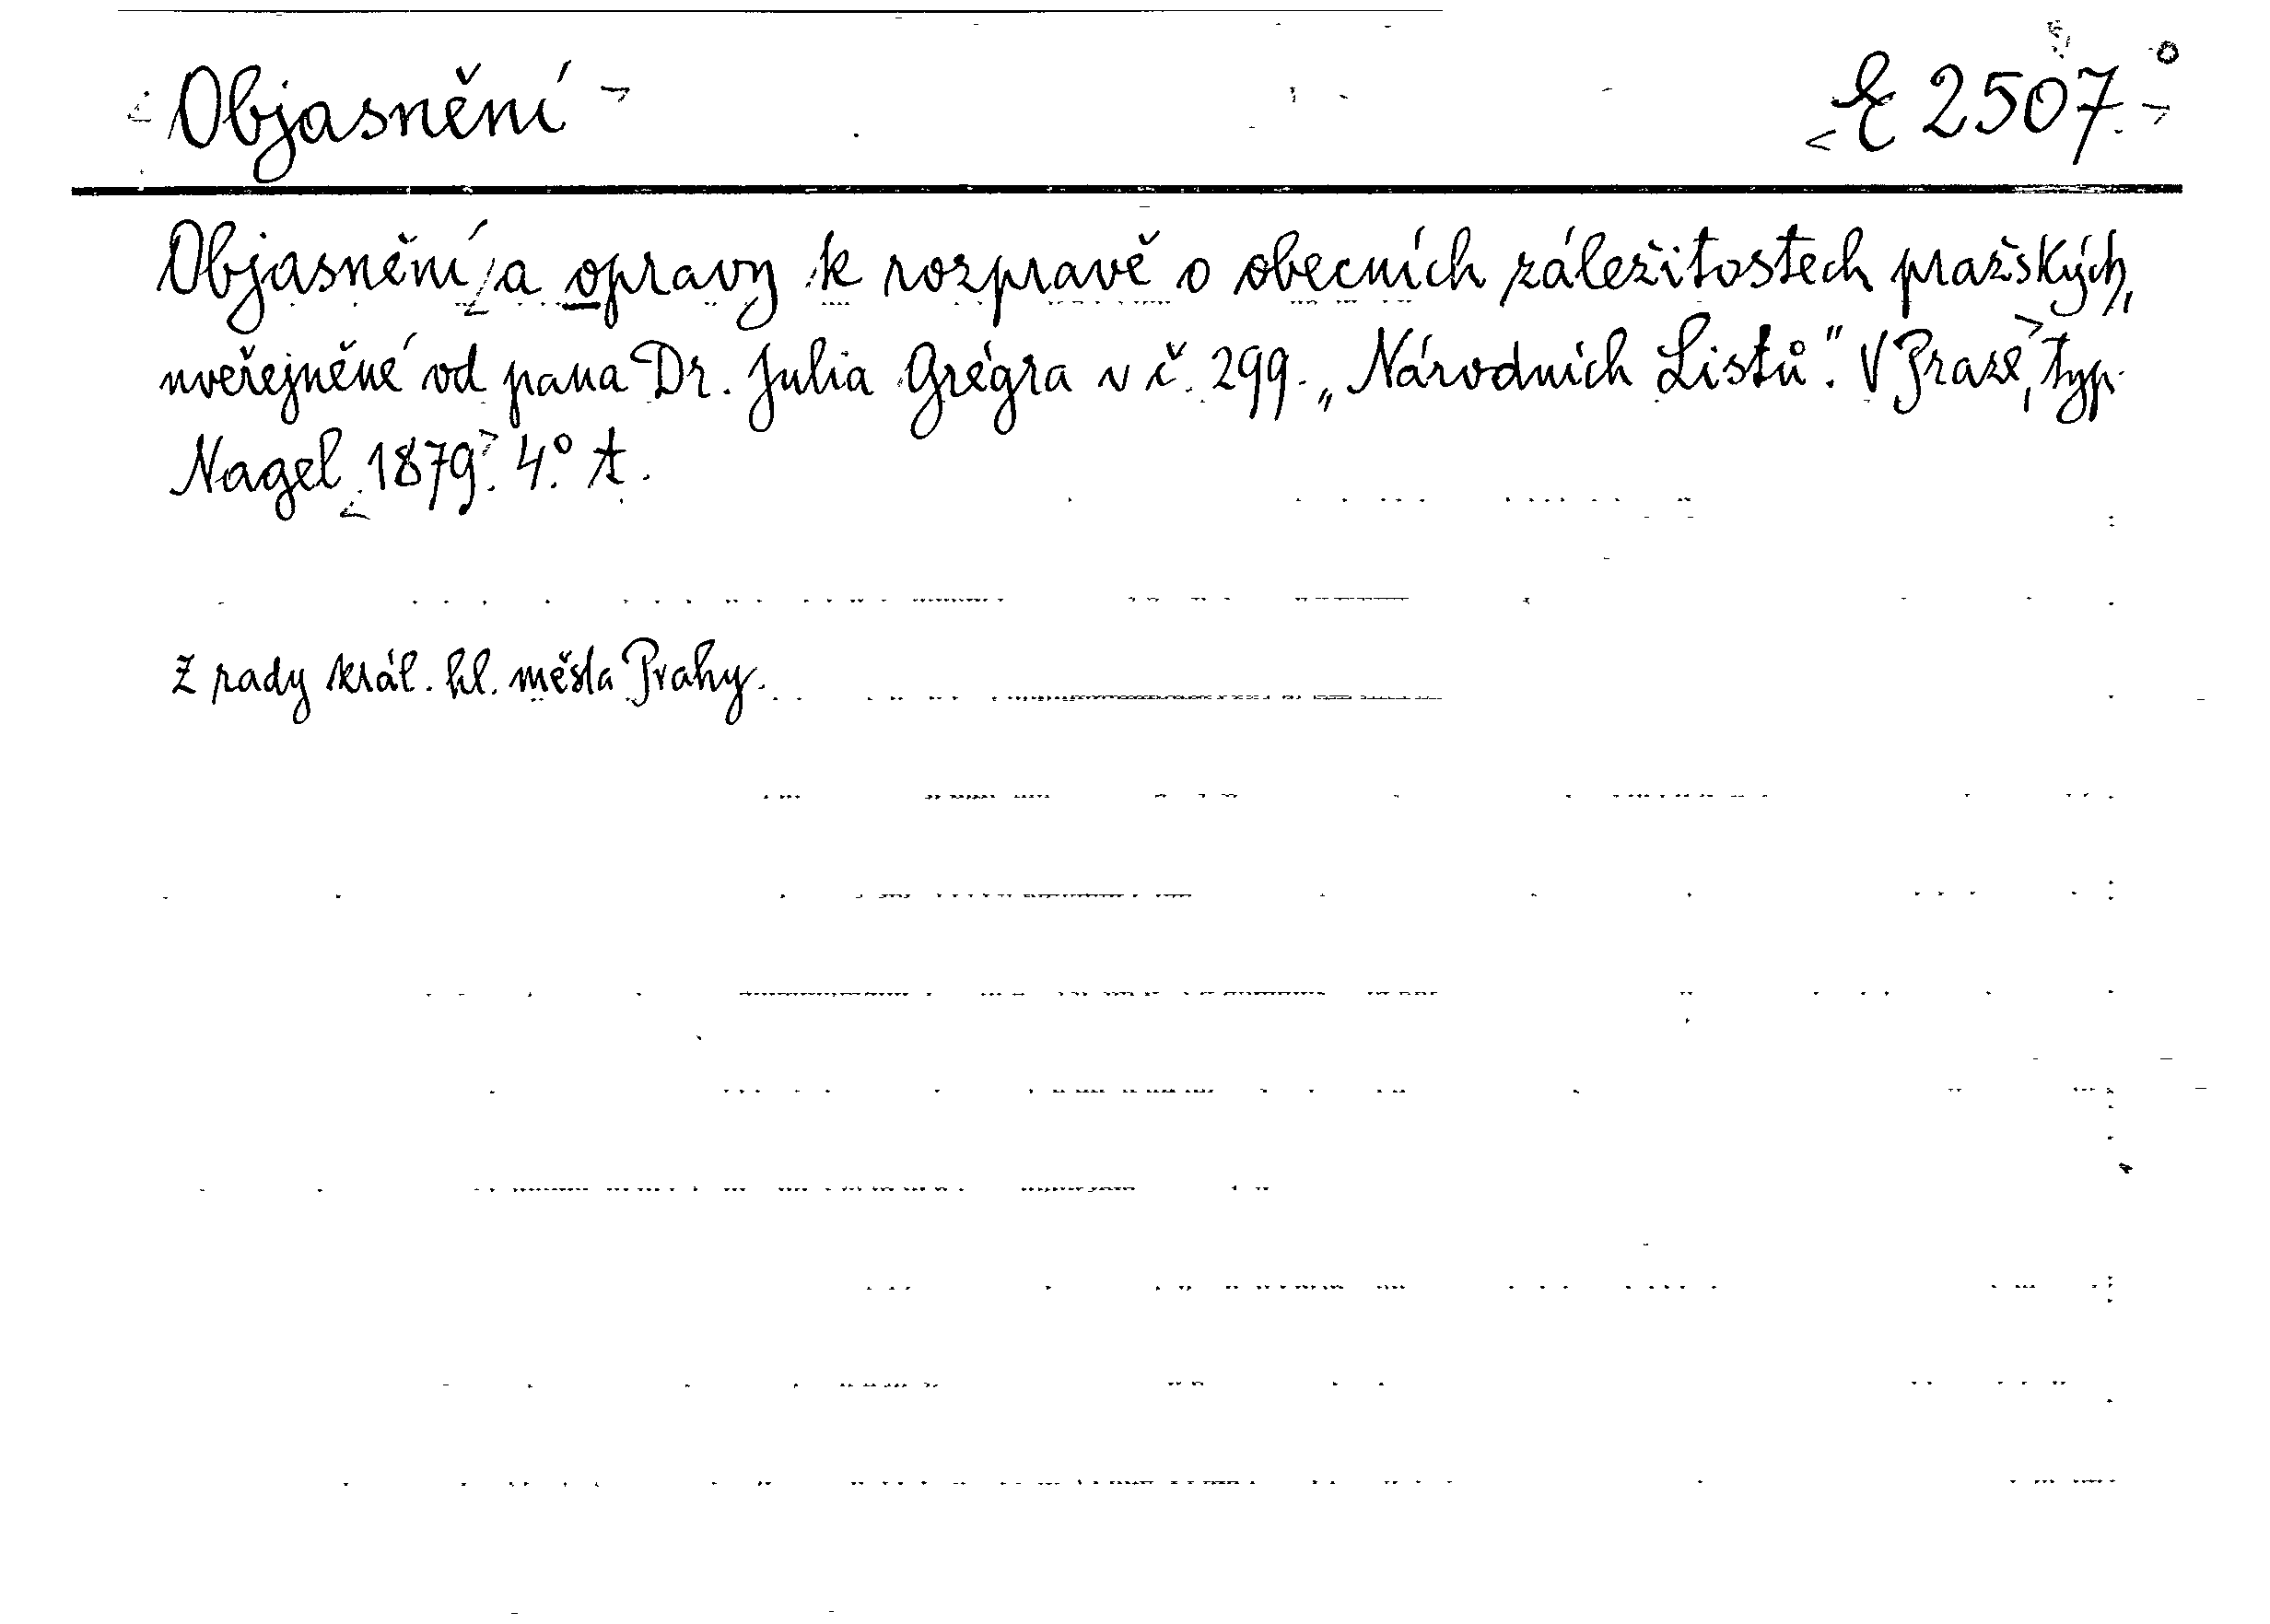 Objasnění E 2507.
Objasnění a opravy k rozpravě o obecních záležitostech pražských,
uveřejněné od pana Dr. Julia Grégra v č. 299. „Národních Listů". V Praze, typ.
Nagel 1879. 4.° A.
Z rady král. hl. města Prahy.